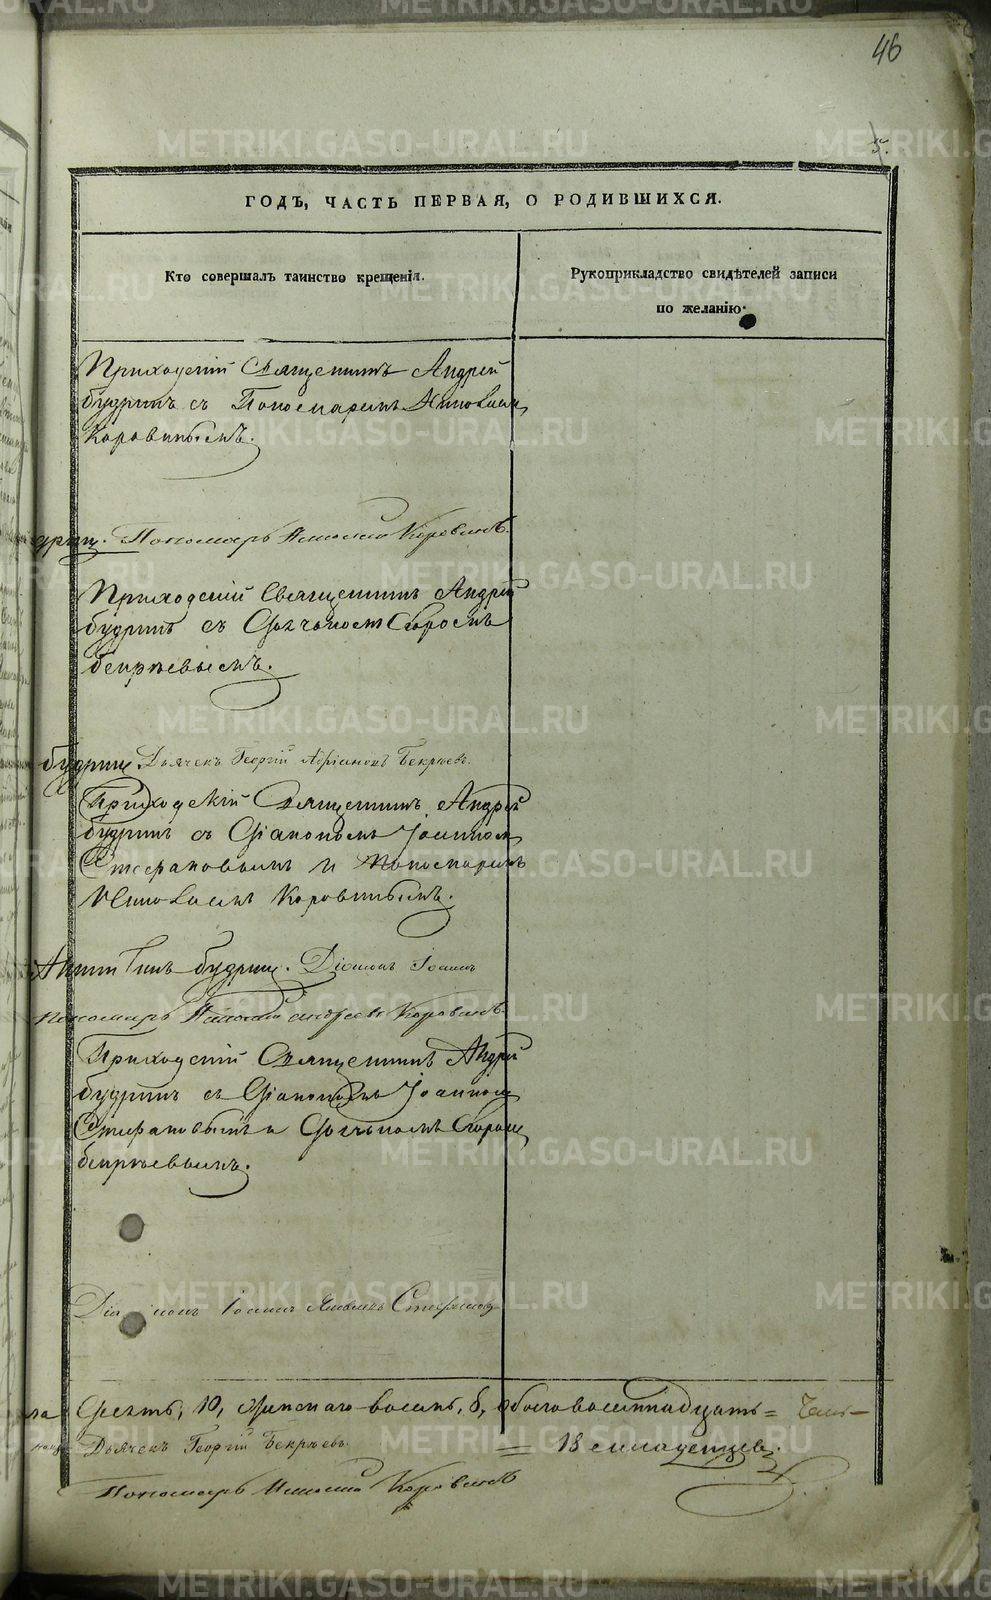 46
5.
ГОДЪ, ЧАСТЬ ПЕРВАЯ, О РОДИВШИХСЯ.
Кто совершалъ таинство крещенія.
Рукоприкладство свидѣтелей записи
по желанію.
Приходскій Священникъ Андрей
Будринъ съ Пономаремъ Николаем
Коровинымъ.
Пономарь Николай Коровинъ.
Приходскій Священникъ Андрей
Будринъ съ Дьячкомъ Егоромъ
Бекряевымъ.
Будрин. Дьячекъ Георгій Бекряевъ.
Приходскій Священникъ Андрей
Будринъ съ Діакономъ Іоанномъ
Стефановымъ и Пономаремъ
Николаемъ Коровинымъ.
Будрин. Діаконъ Іоаннъ
Пономарь Николай Андреевъ Коровинъ
Приходскій Священникъ Андрей
Будринъ съ Діакономъ Іоанном
Стефановымъ и Дьячкомъ Егором
Бекряевымъ.
Діаконъ Іоаннъ Стефановъ
10, женскаго восемь, 8, обоего восемнадцать =
Дьячекъ Георгій Бекряевъ = 18 младенцевъ.
Пономарь Николай Коровинъ
METRIKI.GASO-URAL.RU